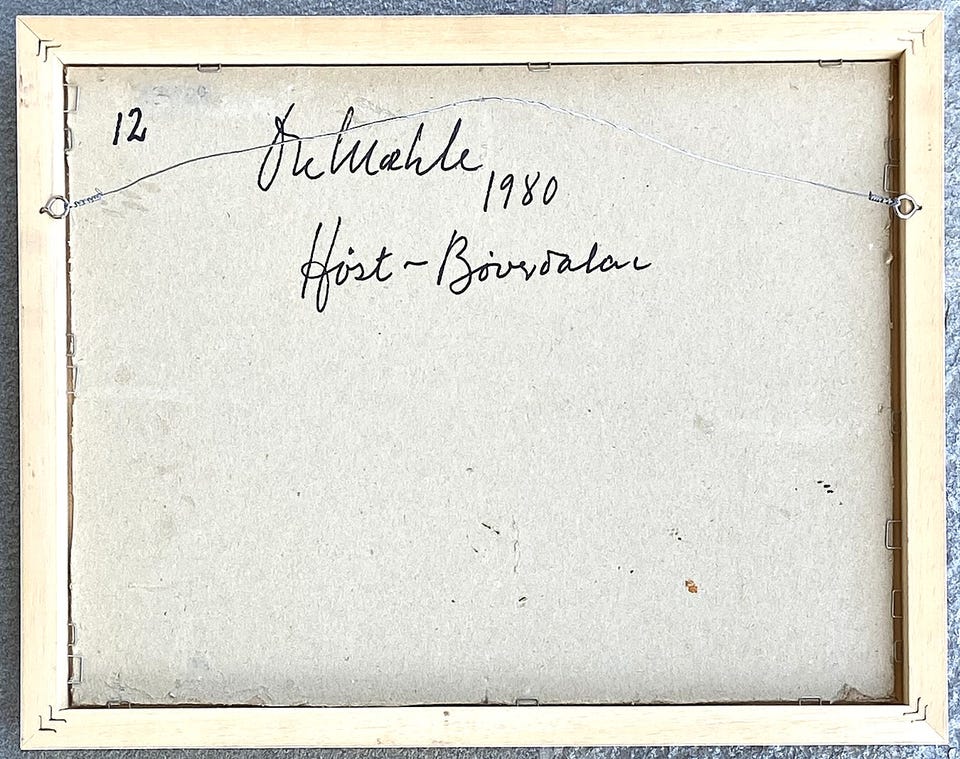 12
Ole Mæhle
1980
Høst - Bøverdalen